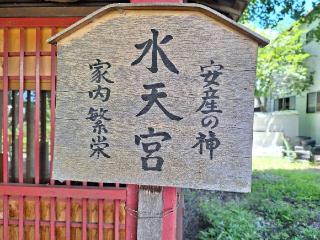 安産の神
水天宮
家内繁栄